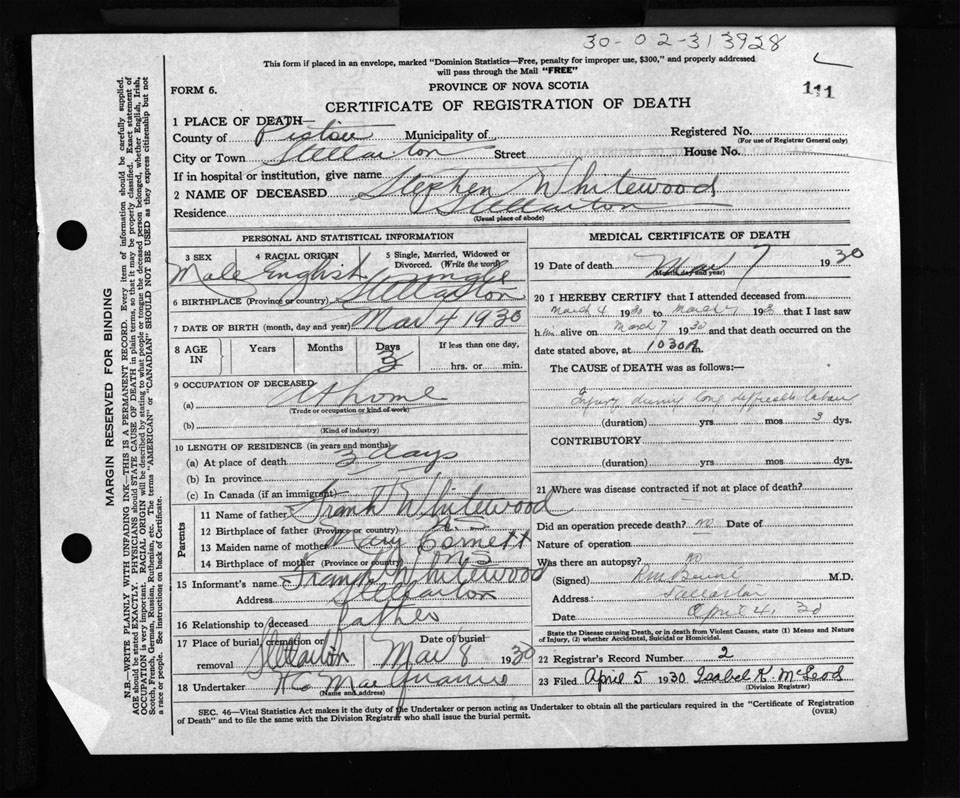 30-02-313928
This form if placed in an envelope, marked "Dominion Statistics—Free, penalty for improper use, $300," and properly addressed
will pass through the Mail "FREE"
FORM 6.
PROVINCE OF NOVA SCOTIA
111
CERTIFICATE OF REGISTRATION OF DEATH
1 PLACE OF DEATH—
County of Pictou Municipality of Registered No.
(For use of Registrar General only)
City or Town Stellarton Street House No.
If in hospital or institution, give name
2 NAME OF DECEASED Stephen Whitewood
Residence Stellarton
(Usual place of abode)
PERSONAL AND STATISTICAL INFORMATION
3 SEX 4 RACIAL ORIGIN 5 Single, Married, Widowed or
Divorced. (Write the word)
Male English Single
6 BIRTHPLACE (Province or country) Stellarton
7 DATE OF BIRTH (month, day and year) Mar 4 1930
8 AGE IN Years Months Days 3 If less than one day, hrs. or min.
9 OCCUPATION OF DECEASED
(a) At home
(Trade or occupation or kind of work)
(b)
(Kind of industry)
10 LENGTH OF RESIDENCE (in years and months)
(a) At place of death 3 days
(b) In province
(c) In Canada (if an immigrant)
Parents
11 Name of father Frank Whitewood
12 Birthplace of father (Province or country) N S
13 Maiden name of mother Mary
14 Birthplace of mother (Province or country) N S
15 Informant's name Frank Whitewood
Address Stellarton
16 Relationship to deceased Father
17 Place of burial, cremation or removal Stellarton Date of burial Mar 8 1930
18 Undertaker
(Name and address)
MEDICAL CERTIFICATE OF DEATH
19 Date of death Mar 7 1930
(Month, day and year)
20 I HEREBY CERTIFY that I attended deceased from
March 4 1930 to March 7 1930 that I last saw
him alive on March 7 1930 and that death occurred on the
date stated above, at 1030 A m.
The CAUSE of DEATH was as follows:—
Injury during long difficult labour
(duration) yrs. mos 3 dys.
CONTRIBUTORY
(duration) yrs. mos. dys.
21 Where was disease contracted if not at place of death?
Did an operation precede death? no Date of
Nature of operation
Was there an autopsy? no
(Signed) M.D.
Address Stellarton
Date April 4, 30
State the Disease causing Death, or in death from Violent Causes, state (1) Means and Nature
of Injury, (2) whether Accidental, Suicidal or Homicidal.
22 Registrar's Record Number 2
23 Filed April 5 1930 Isabel K. McLeod
(Division Registrar)
SEC. 46—Vital Statistics Act makes it the duty of the Undertaker or person acting as Undertaker to obtain all the particulars required in the "Certificate of Registration
of Death" and to file the same with the Division Registrar who shall issue the burial permit.
(OVER)
MARGIN RESERVED FOR BINDING
N.B.—WRITE PLAINLY WITH UNFADING INK—THIS IS A PERMANENT RECORD. Every item of information should be carefully supplied.
AGE should be stated EXACTLY. PHYSICIANS should STATE CAUSE OF DEATH in plain terms, so that it may be properly classified. Exact statement of
OCCUPATION is very important. RACIAL ORIGIN will be described by stating to what people or tongue the deceased person belonged, whether English, Irish,
Scotch, French, German, Russian, Ruthenian, etc. The terms "AMERICAN" or "CANADIAN" SHOULD NOT BE USED as they express citizenship but not
a race or people. See instructions on back of Certificate.